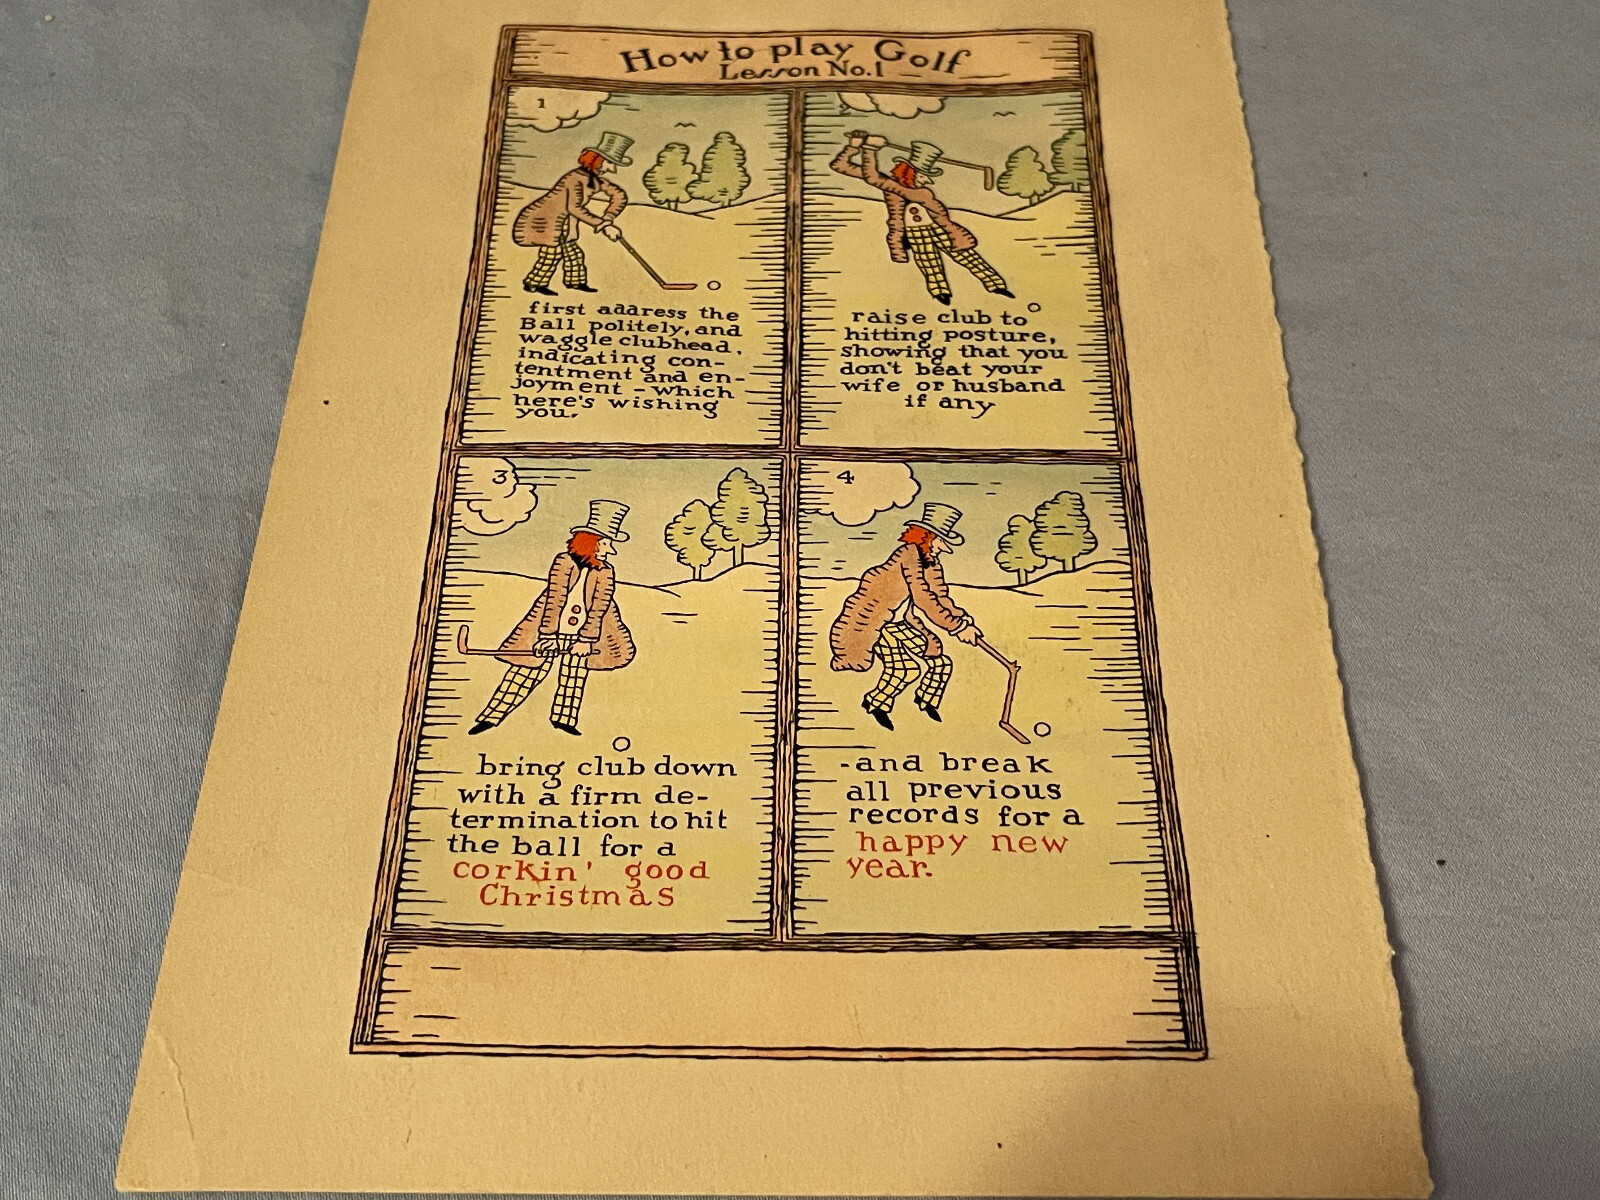 How to play Golf
Lesson No.1
1
first address the
Ball politely, and
waggle clubhead,
indicating con-
tentment and en-
joyment - which
here's wishing
you.
2
raise club to
hitting posture,
showing that you
don't beat your
wife or husband
if any
3
bring club down
with a firm de-
termination to hit
the ball for a
corkin' good
Christmas
4
-and break
all previous
records for a
happy new
year.